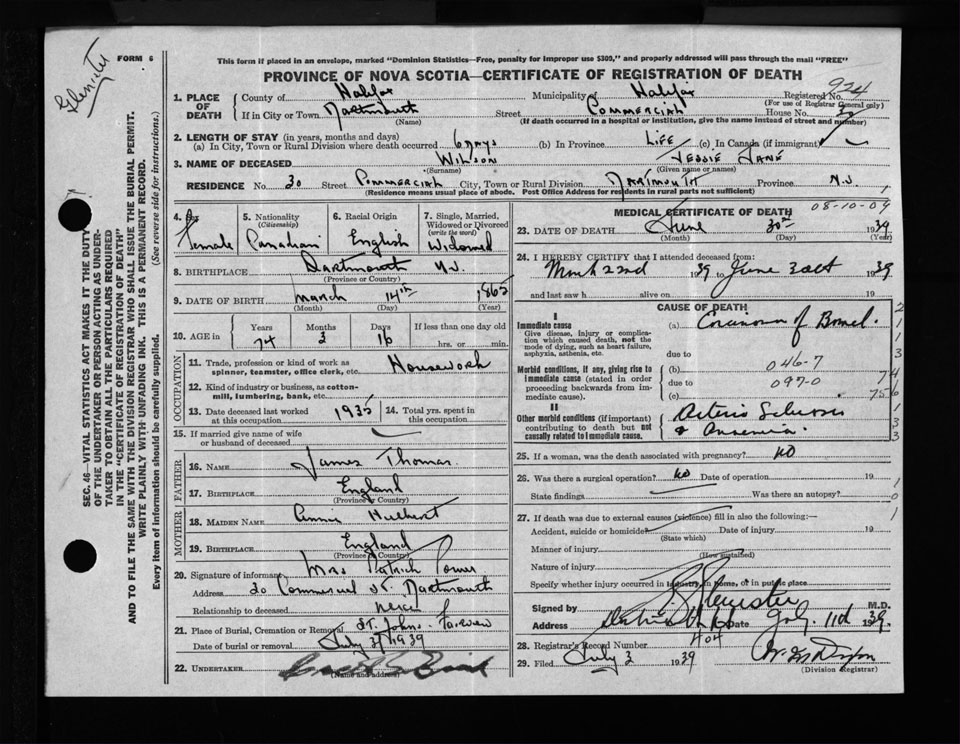 Glenister
FORM 6
This form if placed in an envelope, marked "Dominion Statistics—Free, penalty for improper use $300," and properly addressed will pass through the mail "FREE"
PROVINCE OF NOVA SCOTIA—CERTIFICATE OF REGISTRATION OF DEATH
SEC. 46—VITAL STATISTICS ACT MAKES IT THE DUTY
OF THE UNDERTAKER OR PERSON ACTING AS UNDER-
TAKER TO OBTAIN ALL THE PARTICULARS REQUIRED
IN THE "CERTIFICATE OF REGISTRATION OF DEATH"
AND TO FILE THE SAME WITH THE DIVISION REGISTRAR WHO SHALL ISSUE THE BURIAL PERMIT.
WRITE PLAINLY WITH UNFADING INK. THIS IS A PERMANENT RECORD.
Every item of information should be carefully supplied. (See reverse side for instructions.)
1. PLACE OF DEATH
County of Halifax Municipality of Halifax Registered No. 924
(For use of Registrar General only)
If in City or Town Dartmouth Street Commercial House No. 30
(Name) (If death occurred in a hospital or institution, give the name instead of street and number)
2. LENGTH OF STAY (in years, months and days)
(a) In City, Town or Rural Division where death occurred 6 days (b) In Province LIFE (c) In Canada (if immigrant)
3. NAME OF DECEASED Wilson Jessie Jane
(Surname) (Given name or names)
RESIDENCE No. 30 Street Commercial City, Town or Rural Division Dartmouth Province N.S.
(Residence means usual place of abode. Post Office Address for residents in rural parts not sufficient)
4. Female
5. Nationality (Citizenship) Canadian
6. Racial Origin English
7. Single, Married, Widowed or Divorced (write the word) Widowed
8. BIRTHPLACE Dartmouth N.S.
(Province or Country)
9. DATE OF BIRTH March 14th 1865
(Month) (Day) (Year)
10. AGE in Years Months Days If less than one day old
74 3 16 hrs. or min.
OCCUPATION
11. Trade, profession or kind of work as spinner, teamster, office clerk, etc. Housework
12. Kind of industry or business, as cotton-mill, lumbering, bank, etc.
13. Date deceased last worked at this occupation 1935
14. Total yrs. spent in this occupation
15. If married give name of wife or husband of deceased
FATHER
16. NAME James Thomas
17. BIRTHPLACE England
(Province or Country)
MOTHER
18. MAIDEN NAME Annie
19. BIRTHPLACE England
(Province or Country)
20. Signature of informant Mrs Patrick Power
Address 30 Commercial St. Dartmouth
Relationship to deceased niece
21. Place of Burial, Cremation or Removal St. Johns - Fairview
Date of burial or removal July 3rd 1939
22. UNDERTAKER
(Name and address)
MEDICAL CERTIFICATE OF DEATH 08-10-09
23. DATE OF DEATH June 30th 1939
(Month) (Day) (Year)
24. I HEREBY CERTIFY that I attended deceased from:
March 22nd 1939 to June 30th 1939
and last saw h alive on 19
CAUSE OF DEATH
I
Immediate cause
Give disease, injury or complication which caused death, not the mode of dying, such as heart failure, asphyxia, asthenia, etc.
(a) Carcinoma of Bowel.
due to
Morbid conditions, if any, giving rise to immediate cause (stated in order proceeding backwards from immediate cause).
(b) 046-7
due to 097-0
(c)
II
Other morbid conditions (if important) contributing to death but not causally related to immediate cause.
Arterio Sclerosis
& Anaemia
25. If a woman, was the death associated with pregnancy? NO
26. Was there a surgical operation? NO Date of operation 19
State findings Was there an autopsy?
27. If death was due to external causes (violence) fill in also the following:—
Accident, suicide or homicide? Date of injury 19
(State which)
Manner of injury
(How sustained)
Nature of injury
Specify whether injury occurred in industry, in home, or in public place
Signed by Glenister M.D.
Address Dartmouth Date 1939
28. Registrar's Record Number 404
29. Filed July 3 1939
(Division Registrar)